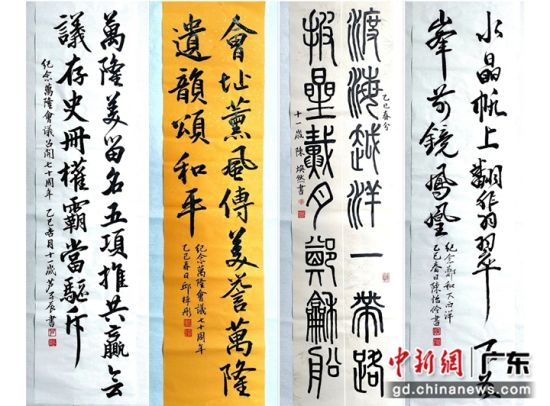 萬隆美留名五項推共贏會
議存史冊權霸當驅斥
紀念萬隆會議召開七十周年
乙巳春月十一歲 書
會址薰風傳美譽萬隆
遺韻頌和平
紀念萬隆會議七十周年
乙巳春日邱梓彤
渡海越洋一帶路
披星戴月鄭龢船
乙巳春分
十一歲陳煥然書
水晶帆上翻翡翠
峯前鏡鳳凰
紀念鄭和下西洋
乙巳春日陳怡 書
中新網 广东
gd.chinanews.com.cn